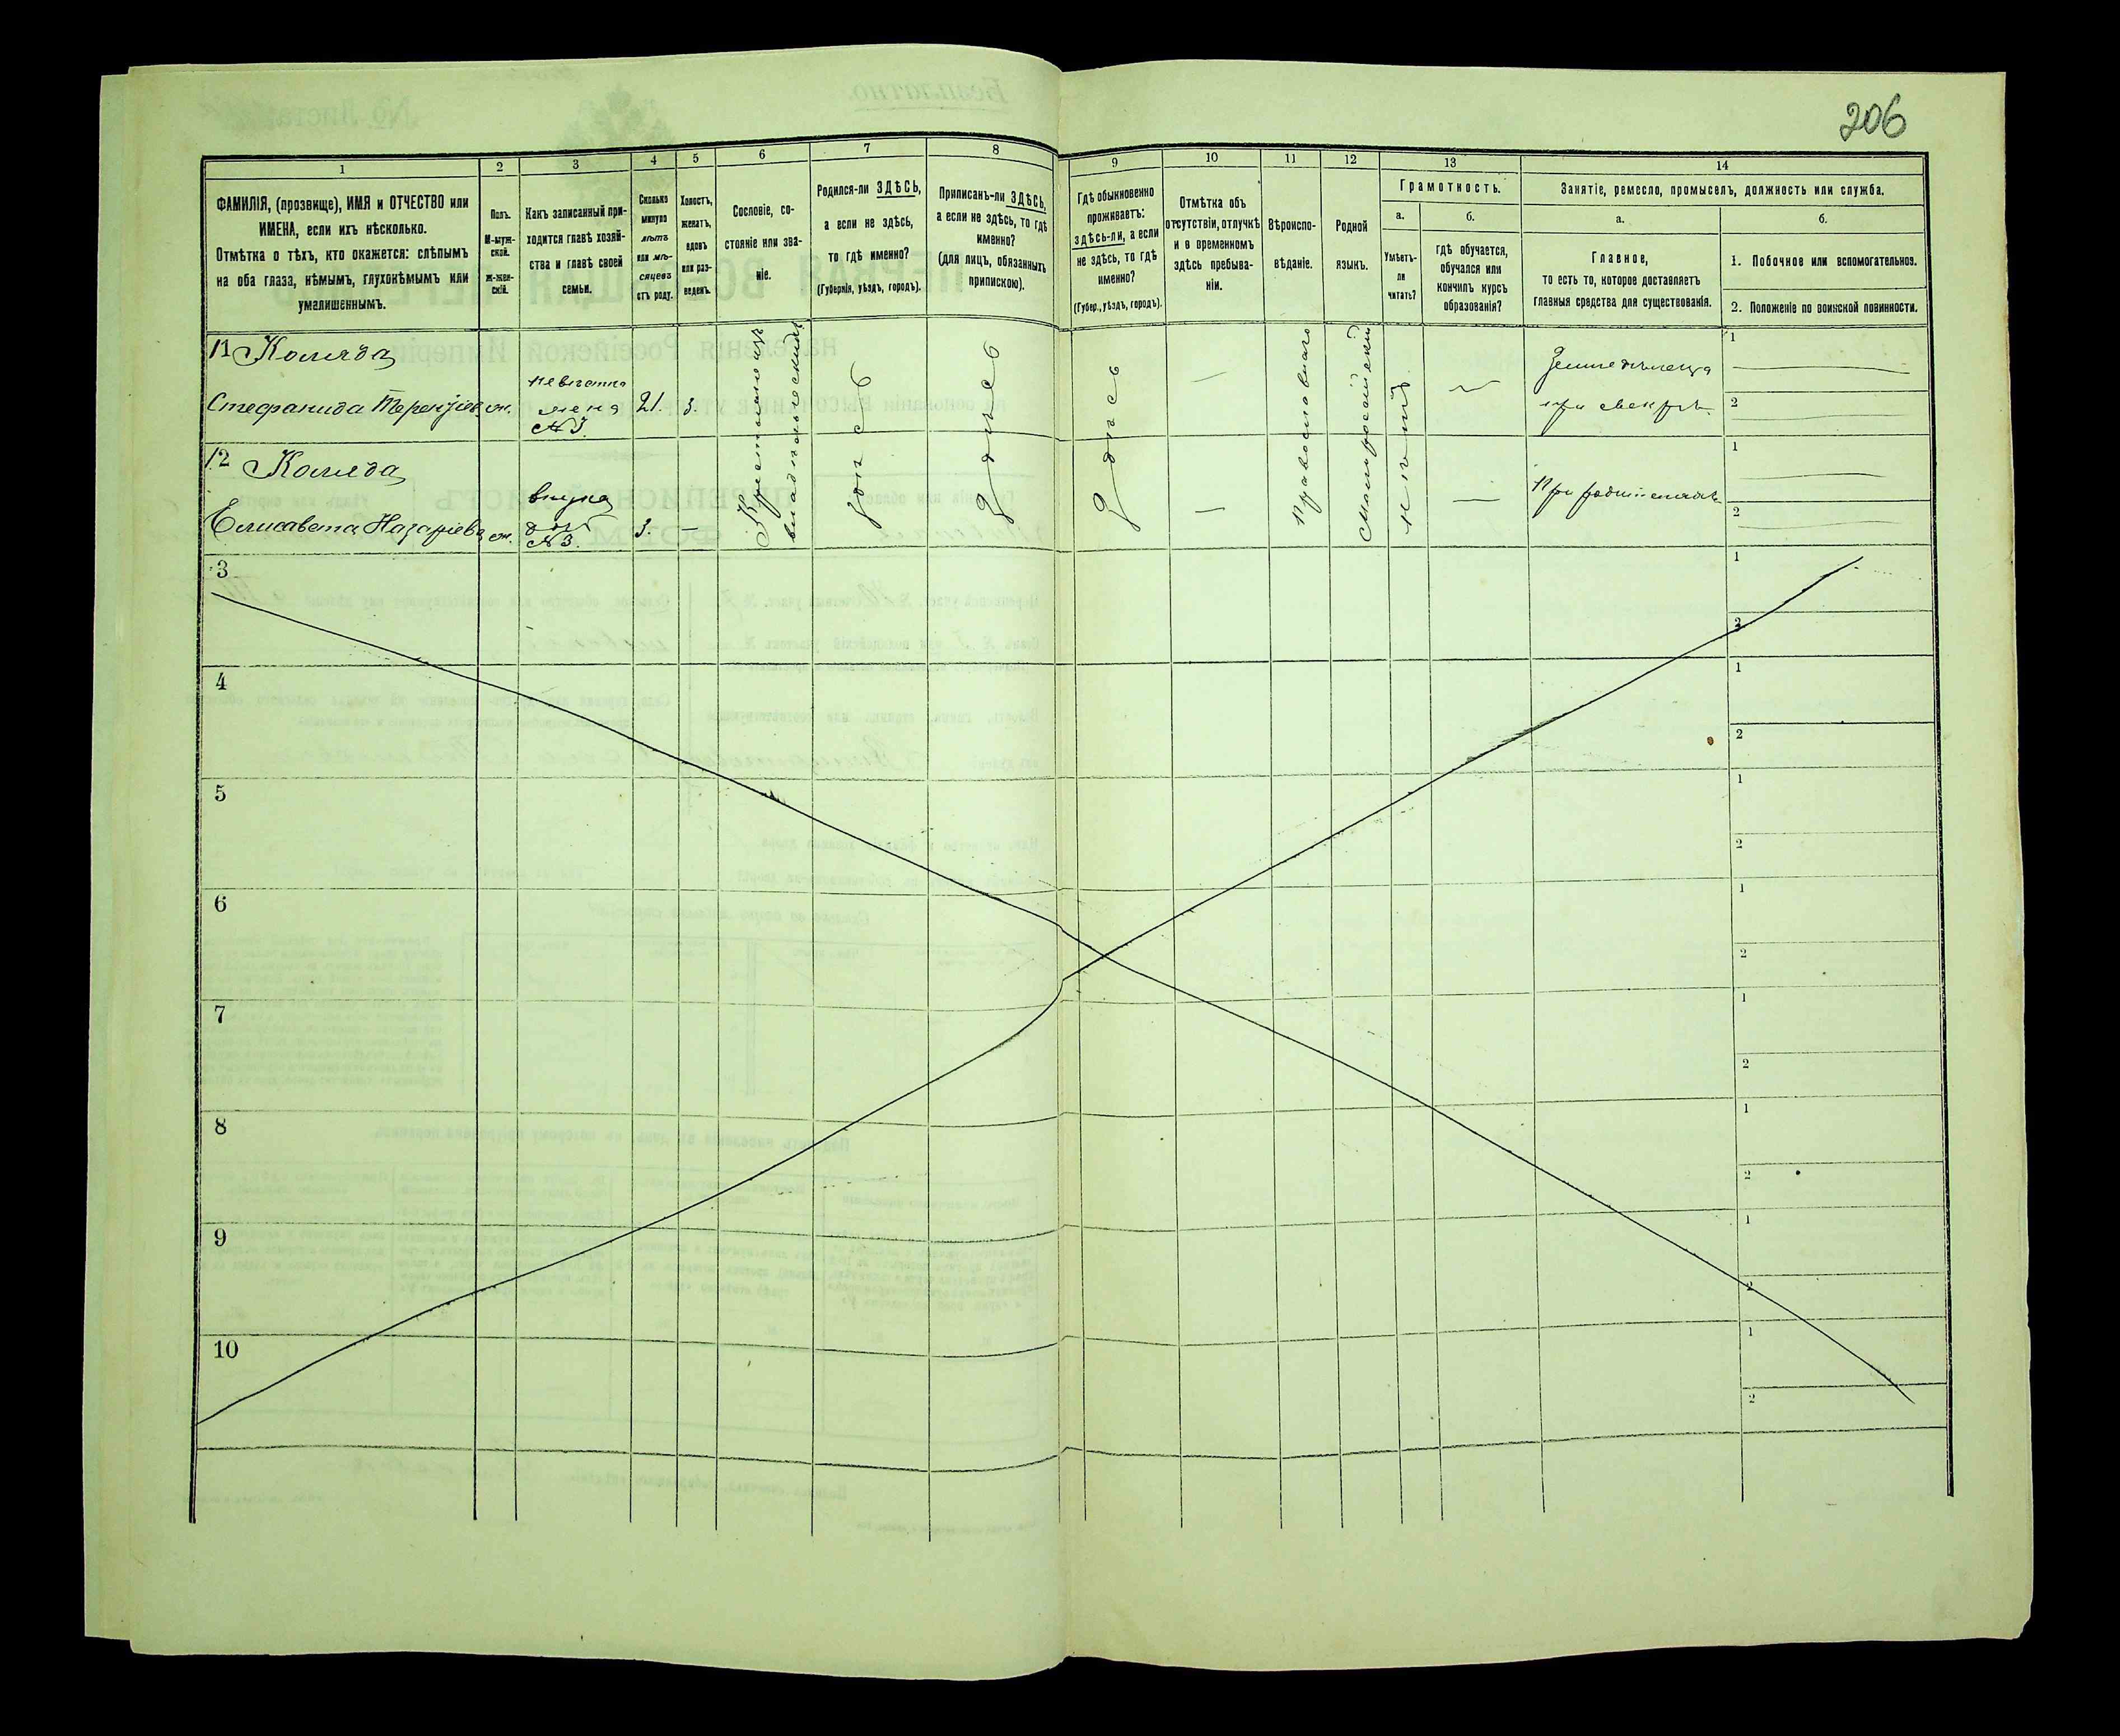 206
1
2
3
4
5
6
7
8
9
10
11
12
13
14
ФАМИЛІЯ, (прозвище), ИМЯ и ОТЧЕСТВО или
ИМЕНА, если ихъ нѣсколько.
Отмѣтка о тѣхъ, кто окажется: слѣпымъ
на оба глаза, нѣмымъ, глухонѣмымъ или
умалишеннымъ.
Полъ.
М-муж-
ской.
Ж-жен-
скій.
Какъ записанный при-
ходится главѣ хозяй-
ства и главѣ своей
семьи.
Сколько
минуло
лѣтъ
или мѣ-
сяцевъ
отъ роду.
Холостъ,
женатъ,
вдовъ
или раз-
веденъ.
Сословіе, со-
стояніе или зва-
ніе.
Родился-ли ЗДѢСЬ,
а если не здѣсь,
то гдѣ именно?
(Губернія, уѣздъ, городъ).
Приписанъ-ли ЗДѢСЬ,
а если не здѣсь, то гдѣ
именно?
(для лицъ, обязанныхъ
припискою).
Гдѣ обыкновенно
проживаетъ:
здѣсь-ли, а если
не здѣсь, то гдѣ
именно?
(Губер., уѣздъ, городъ).
Отмѣтка объ
отсутствіи, отлучкѣ
и о временномъ
здѣсь пребыва-
ніи.
Вѣроиспо-
вѣданіе.
Родной
языкъ.
Грамотность.
а.
Умѣетъ-
ли
читать?
б.
гдѣ обучается,
обучался или
кончилъ курсъ
образованія?
Занятіе, ремесло, промыселъ, должность или служба.
а.
Главное,
то есть то, которое доставляетъ
главныя средства для существованія.
б.
1. Побочное или вспомогательное.
2. Положеніе по воинской повинности.
11 Коляда
Стефанида Терентіев
ж.
невѣстка
жена
№ 3.
21.
з.
Крестьяне изъ
владѣльческихъ
здѣсь
Здѣсь
Здѣсь
—
Православнаго
Малороссійскій
нѣтъ
—
Земледѣлица
при свекрѣ
1
2
12 Коляда
Елисавета Назаріева
ж.
внука
доч
№ 3.
3.
—
—
—
При родителяхъ
1
2
3
1
2
4
1
2
5
1
2
6
1
2
7
1
2
8
1
2
9
1
2
10
1
2